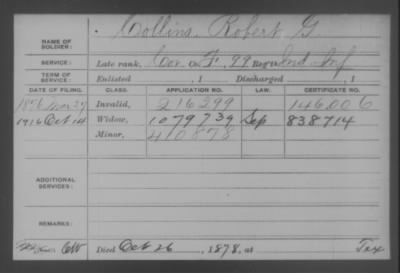 Collins, Robert G
NAME OF SOLDIER:
SERVICE: Late rank, Cor. Co. F, 99 Reg't Ind Inf
TERM OF SERVICE: Enlisted , 1 Discharged , 1
DATE OF FILING. CLASS. APPLICATION NO. LAW. CERTIFICATE NO.
1878 Nov 29 Invalid, 216299 146006
1916 Oct 14 Widow, 1079739 Sep 838714
Minor, 410878
ADDITIONAL SERVICES:
REMARKS:
CW Died Oct 26, 1878, at Tex